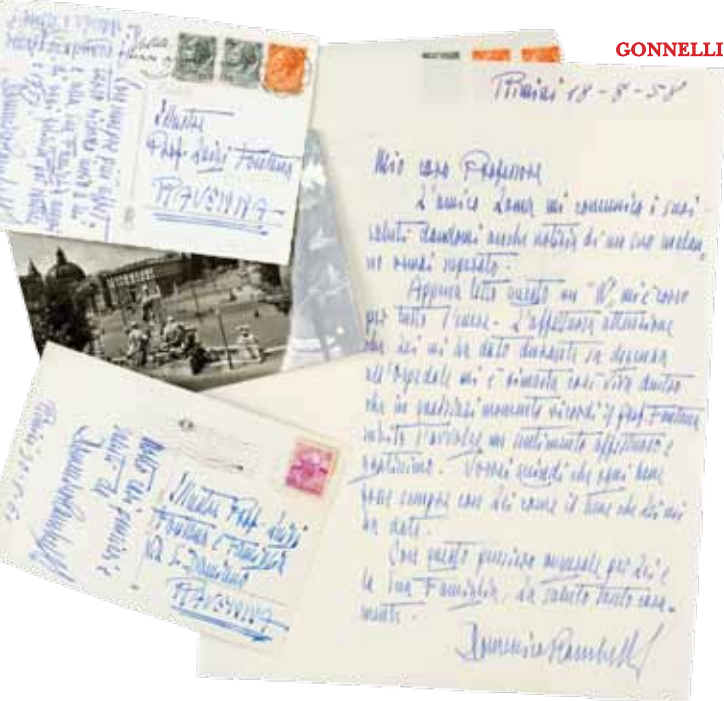 GONNELLI
Rimini 18-8-58
Mio caro Professore
L'amico Lama mi comunica i suoi
saluti dandomi anche notizia di un suo malan,
no ormai superato.
Appena letto questo un "W" mi è corso
per tutto l'essere. L'affettuosa attenzione
che Lei mi ha dato durante la degenza
all'Ospedale mi è rimasta così viva dentro
che in qualsiasi momento ricordi il prof. Fontana
subito l'avvolge un sentimento affettuoso e
gratissimo. Vorrei quindi che ogni bene
fosse sempre con Lei come il bene che Lei mi
ha dato.
Con questo pensiero augurale per Lei e
la Sua Famiglia, La saluto tanto cara-
mente.
Domenico Rambelli
Illustre
Prof. Luigi Fontana
RAVENNA
Illustre Prof. Luigi
Fontana e Famiglia
Via S. Damiano
RAVENNA